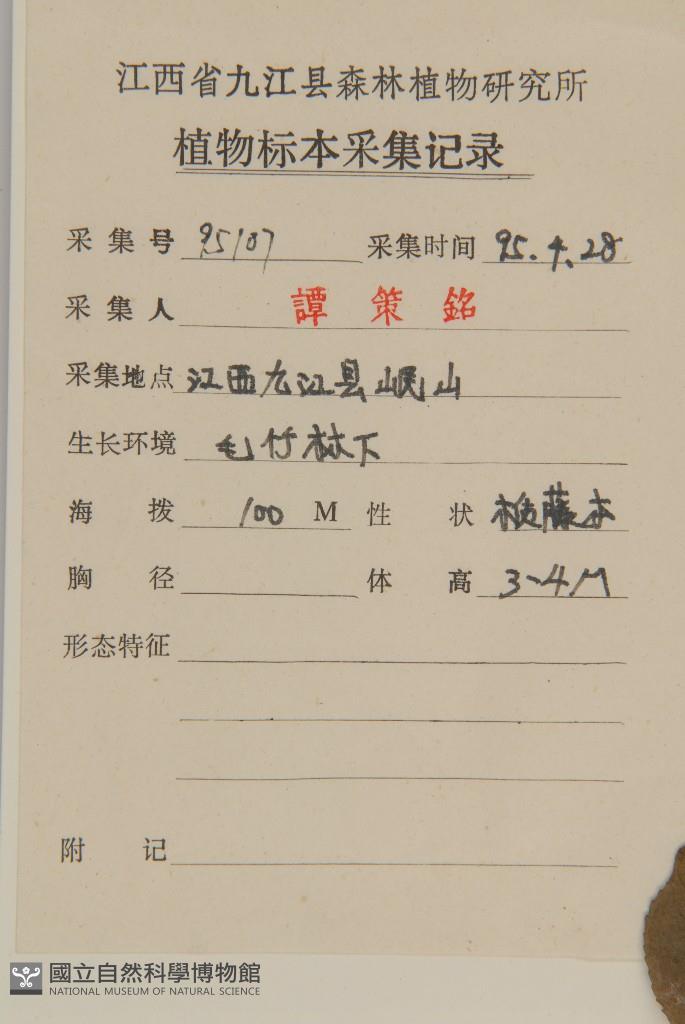 江西省九江县森林植物研究所
植物标本采集记录
采集号 95107 采集时间 95.4.28
采集人 譚策銘
采集地点 江西九江县岷山
生长环境 毛竹林下
海拨 100 M 性状 藤本
胸径 体高 3-4M
形态特征
附记
國立自然科學博物館
NATIONAL MUSEUM OF NATURAL SCIENCE